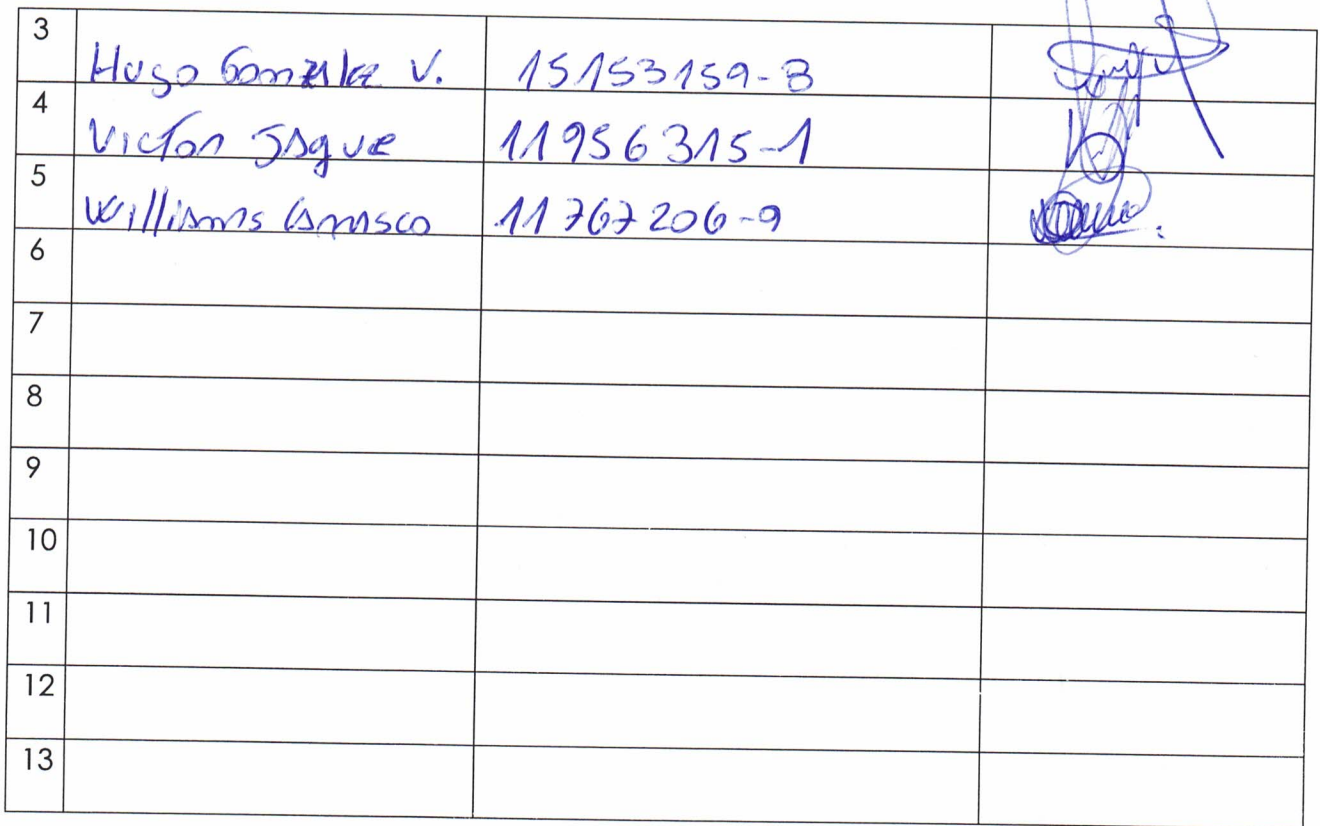 3 Hugo Gonzalez V. 15153159-8
4 Victor Jaque 11956315-1
5 Williams Carrasco 11767206-9
6
7
8
9
10
11
12
13